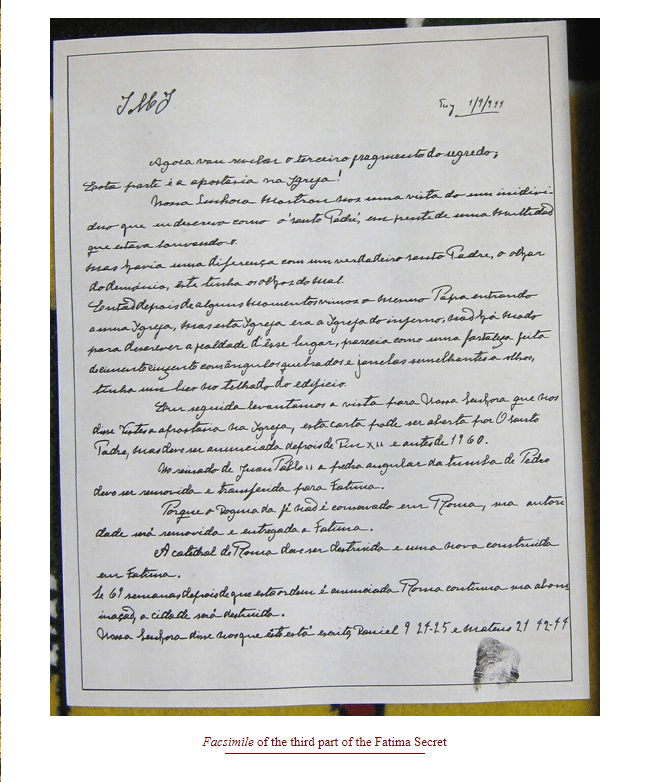 JMJ
Tuy 1/9/944
Agora vou revelar o terceiro fragmento do segredo;
Esta parte é a apostasia na Igreja!
Nossa Senhora mostrou nos uma vista do um individi-
duo que eu descrevo como o 'santo Padre', em frente de uma multidaõ
que estava louvando o.
mas havia uma diferença com um verdadeiro santo Padre, o olhar
do demónio, éste tinha os olhos do mal.
Entaõ depois de alguns momentos vimos o mesmo Papa entrando
a uma Igreja, mas esta Igreja era a Igreja do inferno, naõ há modo
para descrever a fealdade d'ésse lugar, parecia como uma fortaleza feita
de cimento cinzento com ângulos quebrados e janelas semelhantes a olhos,
tinha um bico no telhado do edificio.
Em seguida levantamos a vista para Nossa Senhora que nos
disse Vistes a apostasia na Igreja, esta carta pode ser aberta por O santo
Padre, mas deve ser anunciada depois de Pio XII e antes de 1960.
No reinado de Juan Pablo II a pedra angular da tumba de Pedro
deve ser removida e transferida para Fatima.
Porque o Dogma da fé naõ é conservado em Roma, sua autori
dade será removida e entregada a Fatima.
A catedral de Roma deve ser destruida e uma nova construida
em Fatima.
Se 69 semanas depois de que esta ordem é anunciada Roma continua sua abom
inaçaõ, a cidade será destruida.
Nossa Senhora disse nos que ésto está escrito, Daniel 9 24-25 e Mateus 21 42-44
Facsimile of the third part of the Fatima Secret